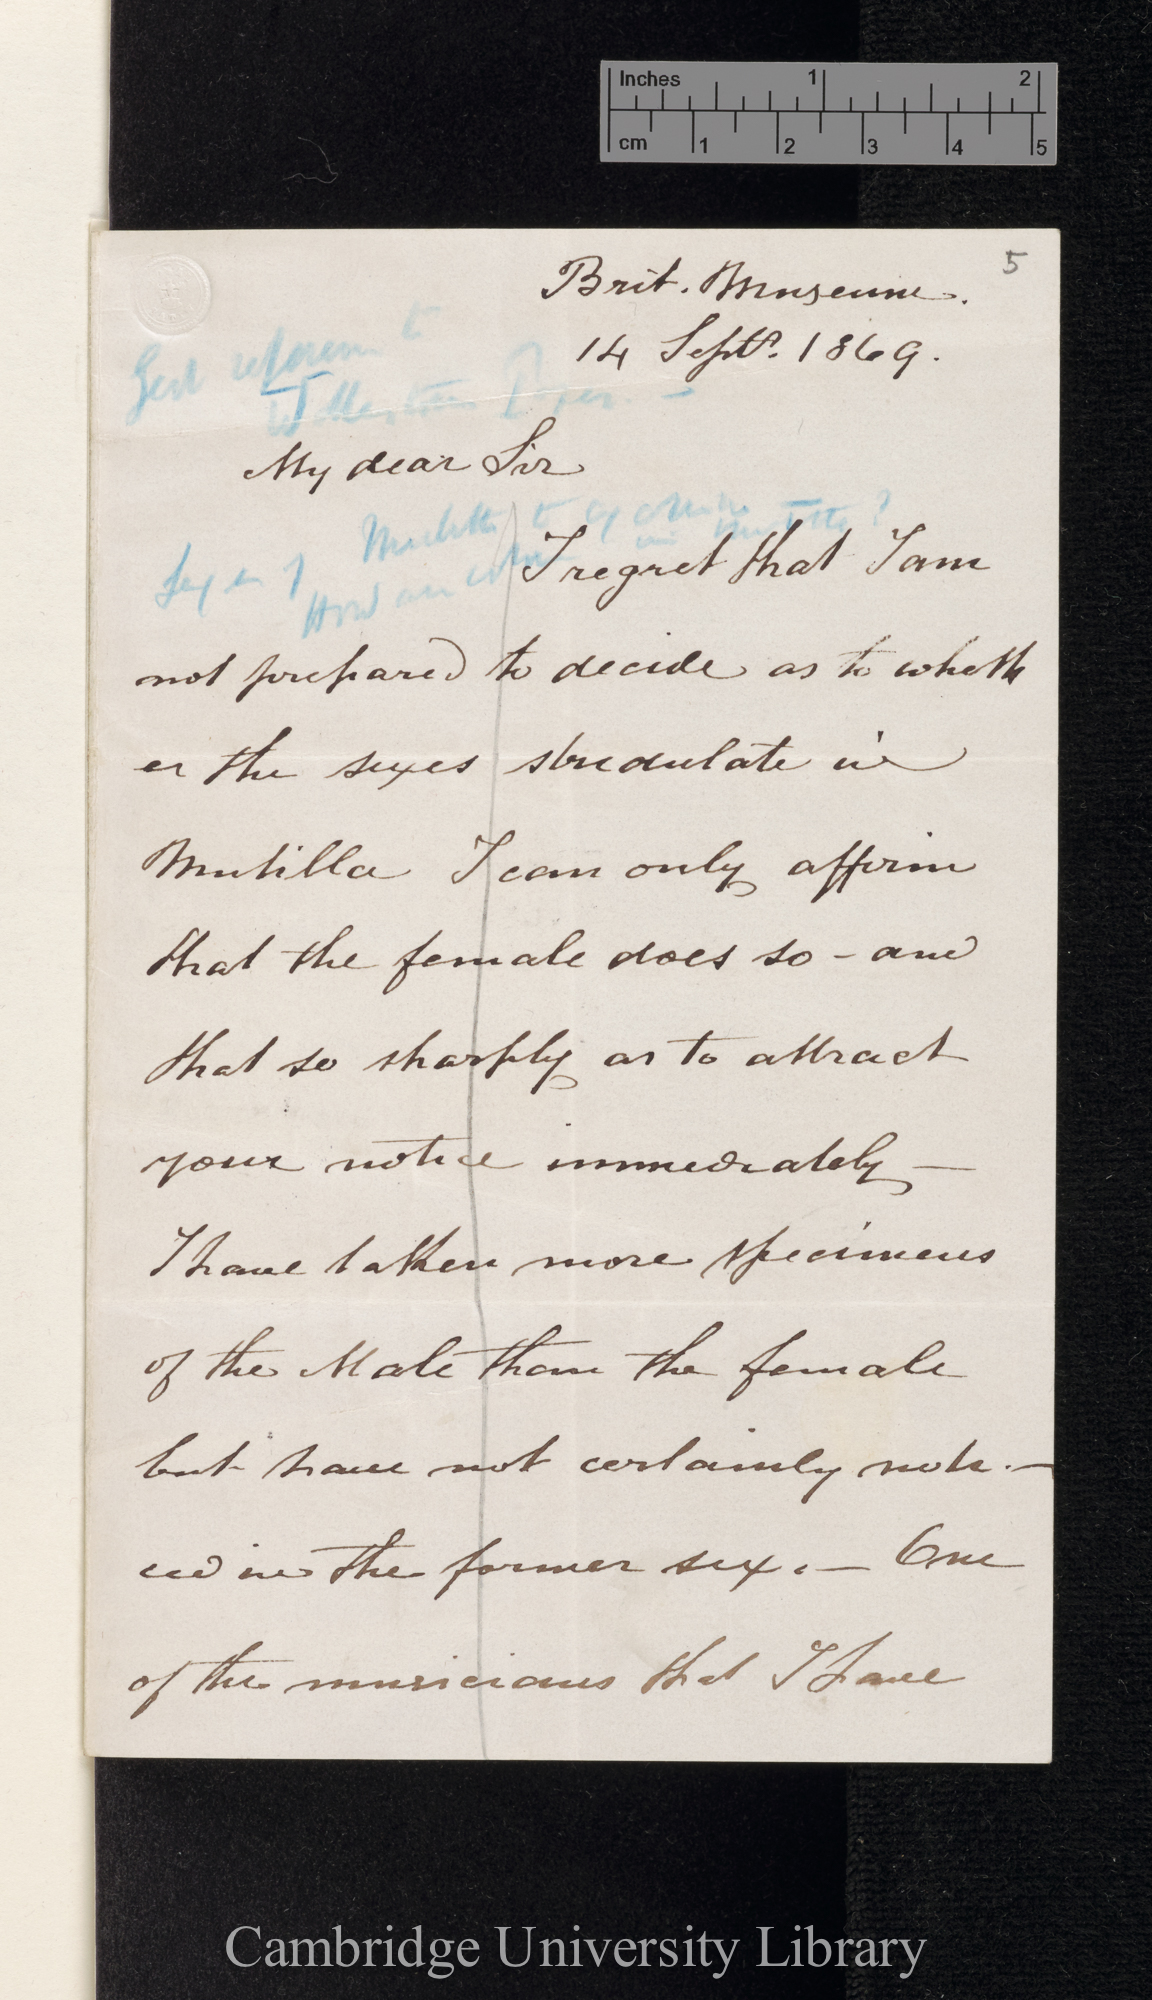 Inches 1 2
cm 1 2 3 4 5
5
Brit. Museum.
14 Septr. 1869.
to
Wollaston Paper. —
My dear Sir
I regret that I am
not prepared to decide as to wheth
er the sexes stridulate in
Mutilla I can only affirm
that the female does so - and
that so sharply as to attract
your notice immediately —
I have taken more specimens
of the Male than the female
but have not certainly noti. —
ced in the former sex. — One
of the musicians that I have
Cambridge University Library